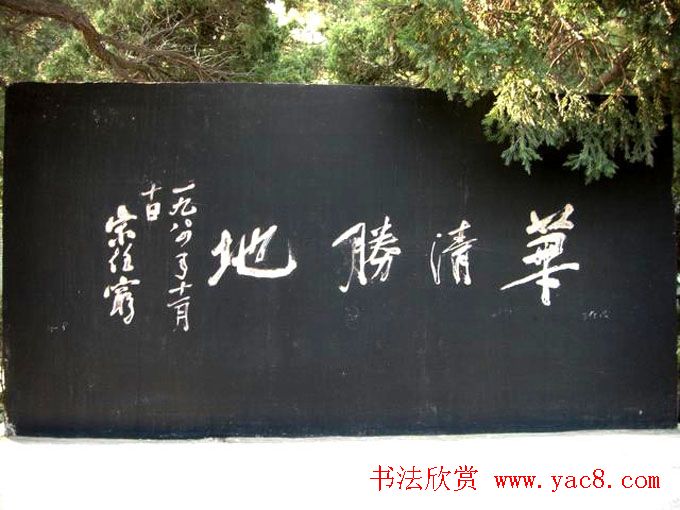 華清勝地
一九八四年十一月
十日
宋任窮
书法欣赏 www.yac8.com